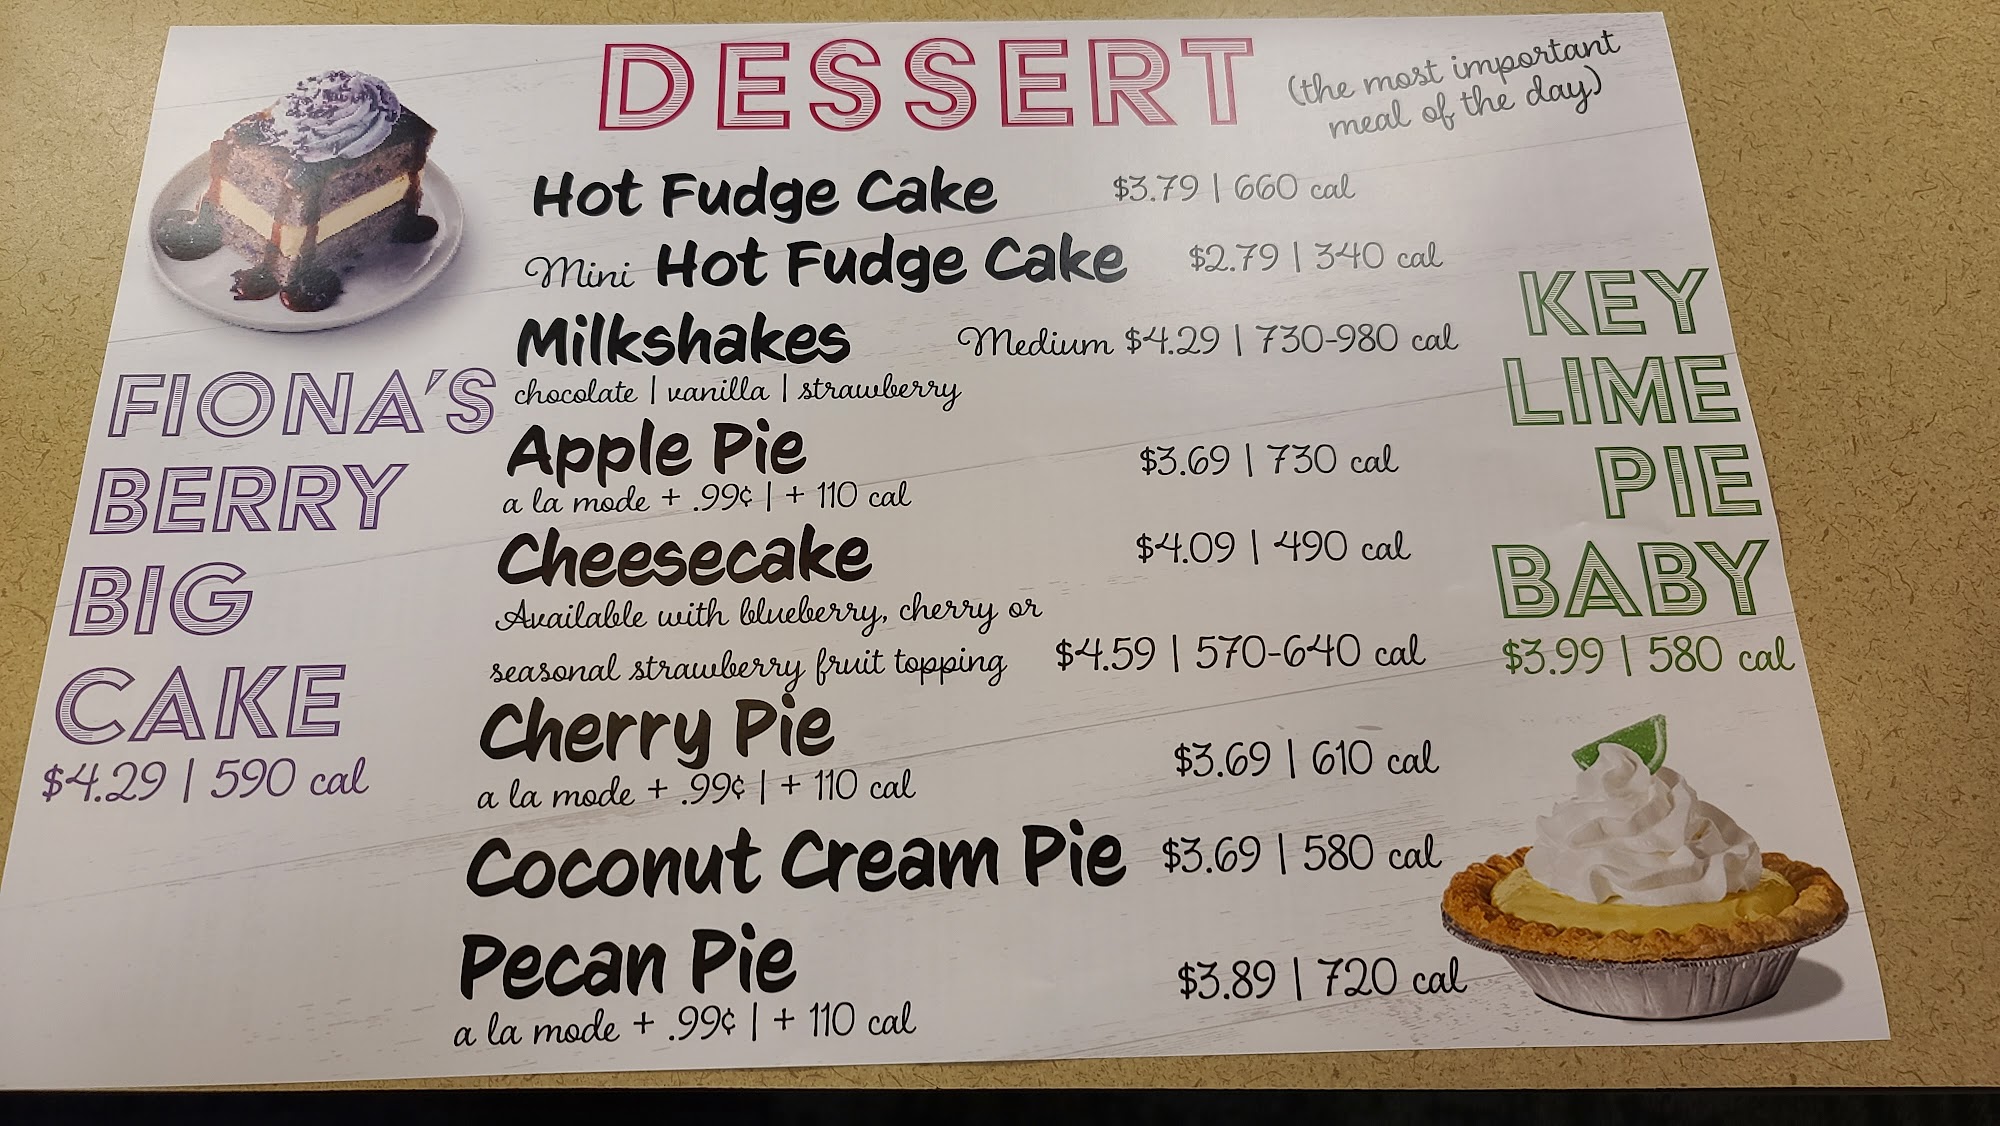 DESSERT
(the most important
meal of the day)
Hot Fudge Cake $3.79 | 660 cal
Mini Hot Fudge Cake $2.79 | 340 cal
Milkshakes Medium $4.29 | 730-980 cal
chocolate | vanilla | strawberry
Apple Pie $3.69 | 730 cal
a la mode + .99¢ | + 110 cal
Cheesecake $4.09 | 490 cal
Available with blueberry, cherry or
seasonal strawberry fruit topping $4.59 | 570-640 cal
Cherry Pie $3.69 | 610 cal
a la mode + .99¢ | + 110 cal
Coconut Cream Pie $3.69 | 580 cal
Pecan Pie $3.89 | 720 cal
a la mode + .99¢ | + 110 cal
FIONA'S
BERRY
BIG
CAKE
$4.29 | 590 cal
KEY
LIME
PIE
BABY
$3.99 | 580 cal